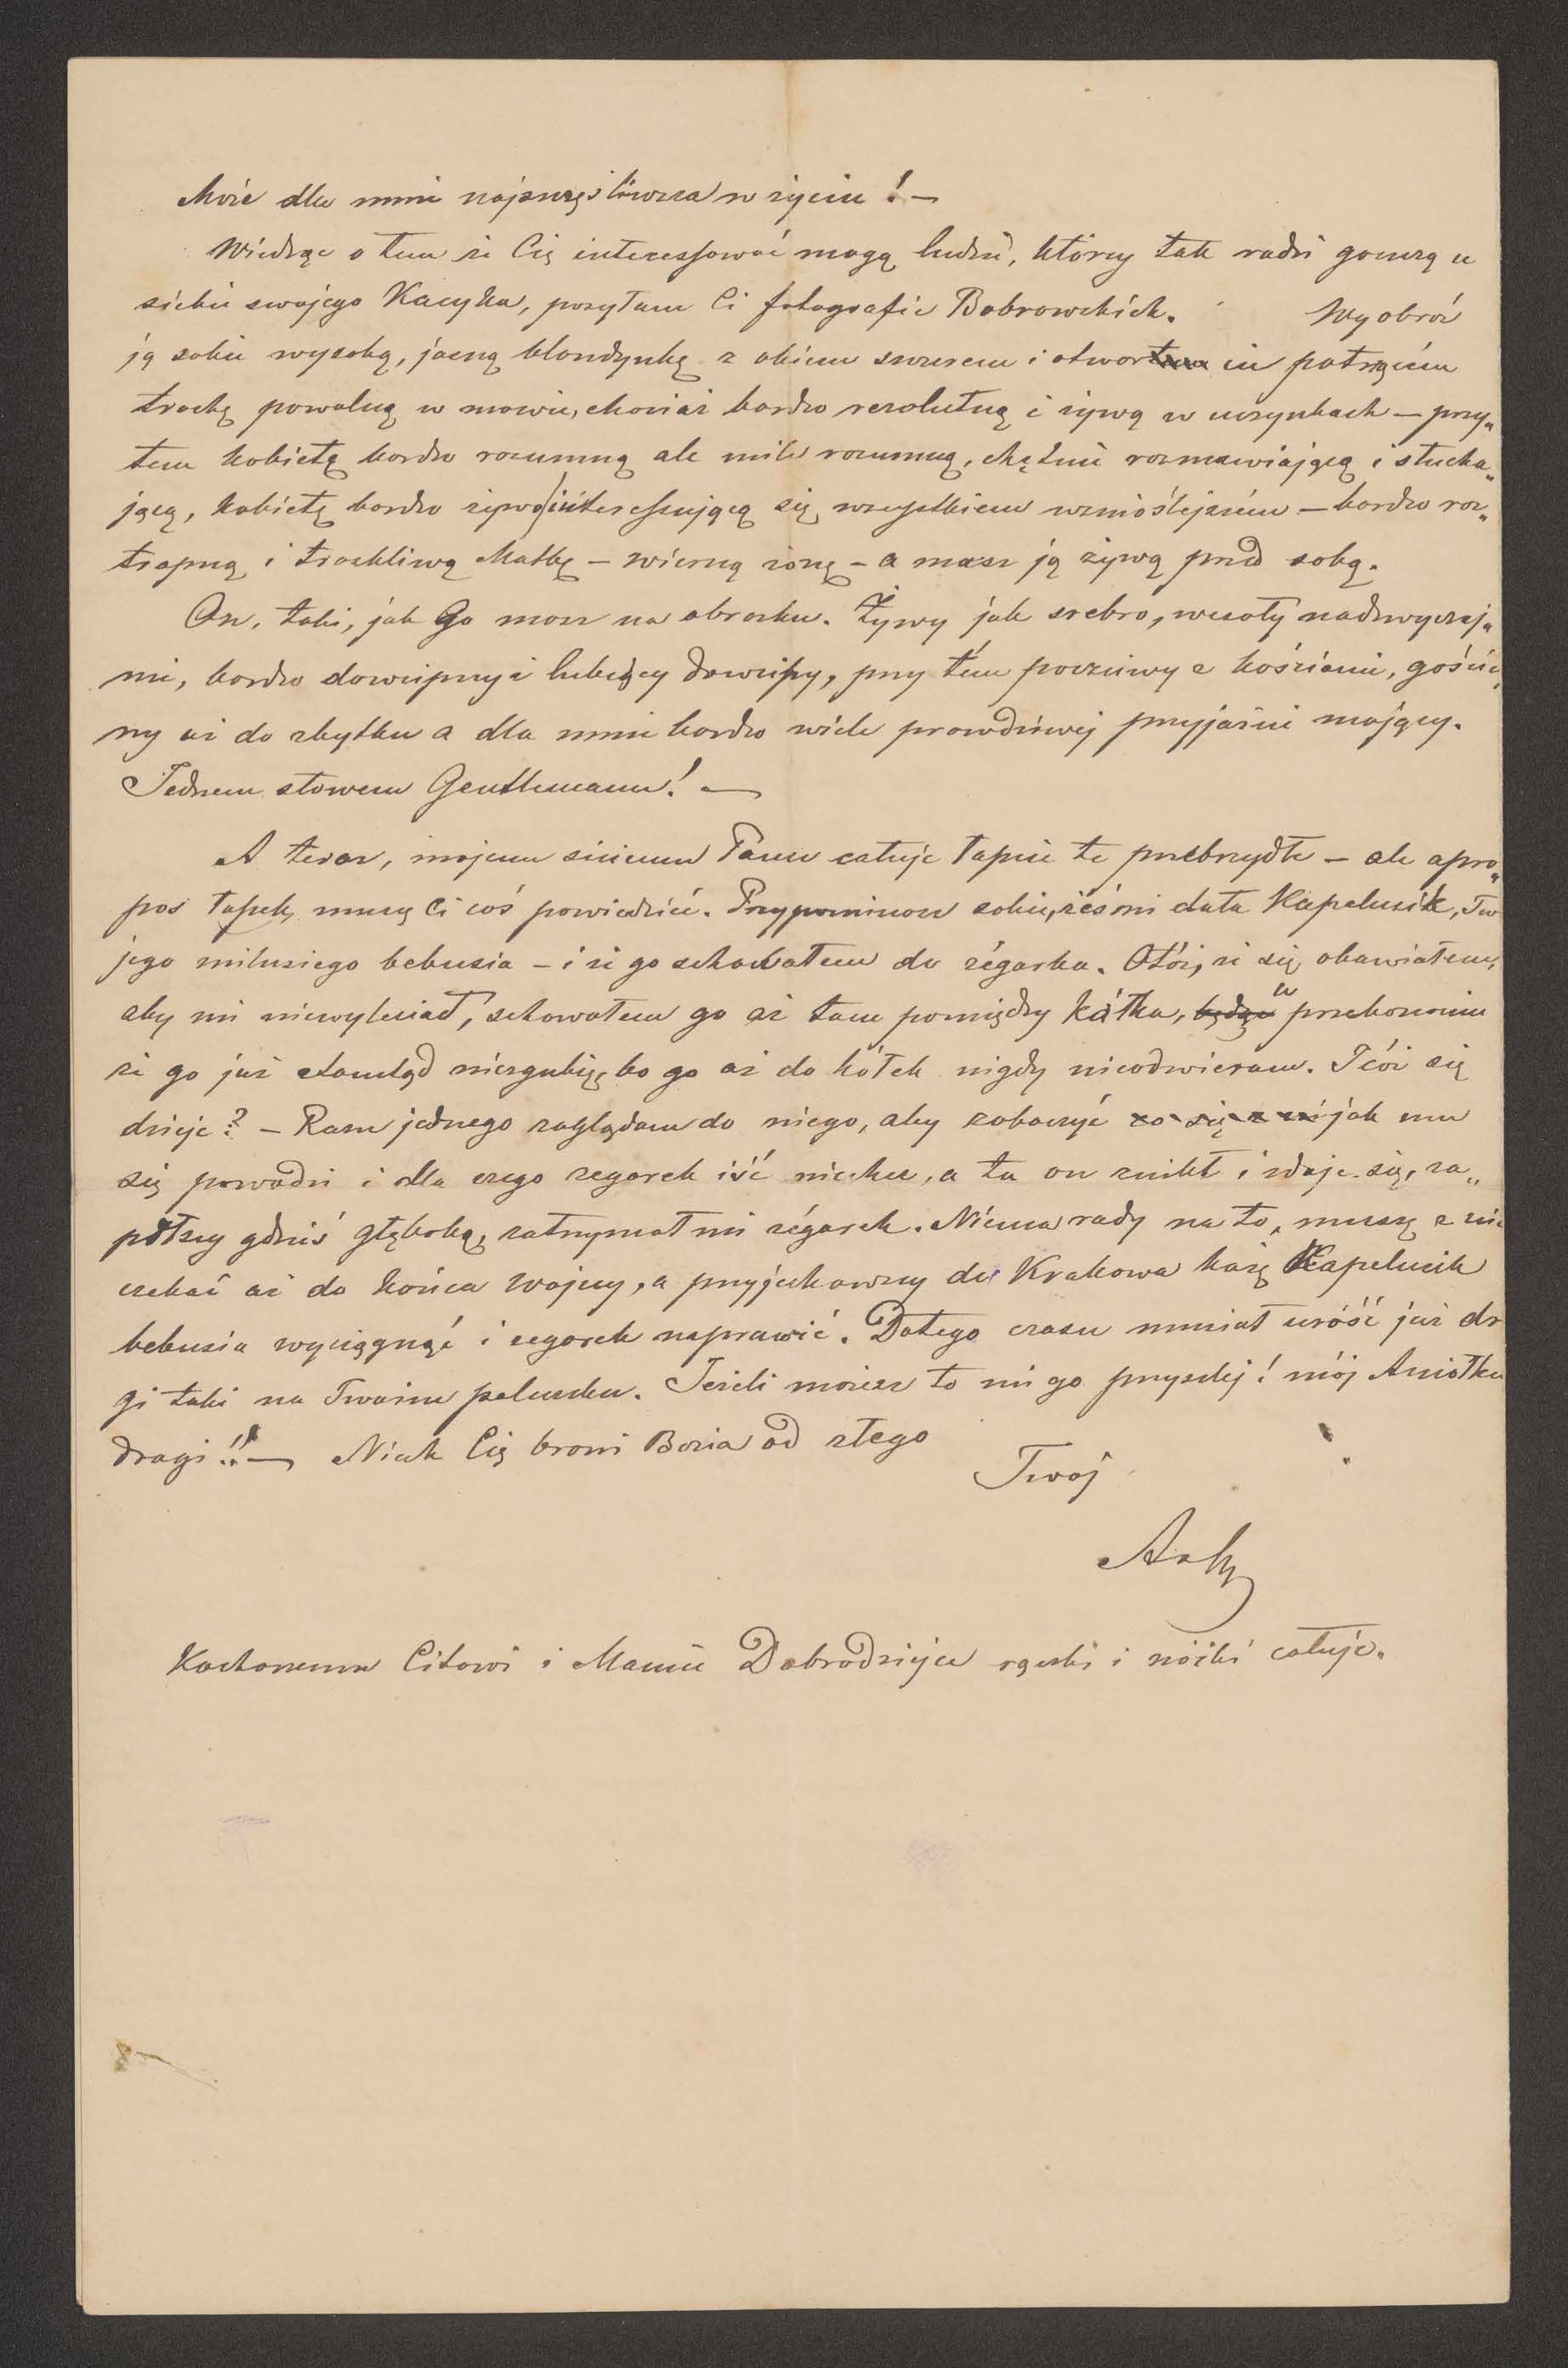 Może dla mnie najszczęśliwsza w życiu! —
Wiedząc o tem że Cię interessować mogą ludzie, którzy tak radzi goszczą u
siebie swojego Kacyka, posyłam Ci fotografie Bobrowskich. Wyobraź
ją sobie wysoką, jasną blondynkę z okiem szczerem i otwarcie patrzącém
trochę powolną w mowie, chociaż bardzo rezolutną i żywą w uczynkach — przy„
tem kobietę bardzo rozumną ale mile rozumną, chętnie rozmawiającą i słucha„
jącą, kobietę bardzo żywo interessującą się wszystkiem wznioślejszém — bardzo roz„
tropną i troskliwą Matkę — wierną żonę — a masz ją żywą przed sobą.
On, taki, jak Go masz na obrazku. Żywy jak srebro, wesoły nadzwyczaj„
nie, bardzo dowcipny i lubiący dowcipy, przy tém poczciwy z kościami, gościn„
ny aż do zbytku a dla mnie bardzo wiele prawdziwej przyjaźni mający.
Jednem słowem Gentlemann! —
A teraz, mojemu siciemu Panu całuję łapcie te przebrzydłe — ale apro„
pos łapek, muszę Ci coś powiedzieć. Przypominasz sobie, żeś mi dała Kapelusik, Two
jego milusiego bebusia — i że go schowałem do zégarka. Otóż, że się obawiałem,
aby mi niewyleciał, schowałem go aż tam pomiędzy kółka, będąc w przekonaniu
że go już stamtąd niezgubię, bo go aż do kółek nigdy nieodwieram. I cóż się
dzieje? — Razu jednego zaglądam do niego, aby zobaczyć co się z ni jak mu
się powodzi i dla czego zegarek iść niechce, a tu on znikł i zdaje się, za„
pełzły gdzieś głęboko, zatrzymał mi zégarek. Niéma rady na to, muszę z nim
czekać aż do końca wojny, a przyjechawszy do Krakowa każę Kapelusik
bebusia wyciągnąć i zegarek naprawić. Dotego czasu musiał uróść już dr
gi taki na Twoim paluszku. Jeżeli możesz to mi go przyszlij! mój Aniołku
drogi!! — Niech Cię broni Bozia od złego
Twój
Kochanemu Citowi i Mamie Dobrodziejce rączki i nóżki całuję.